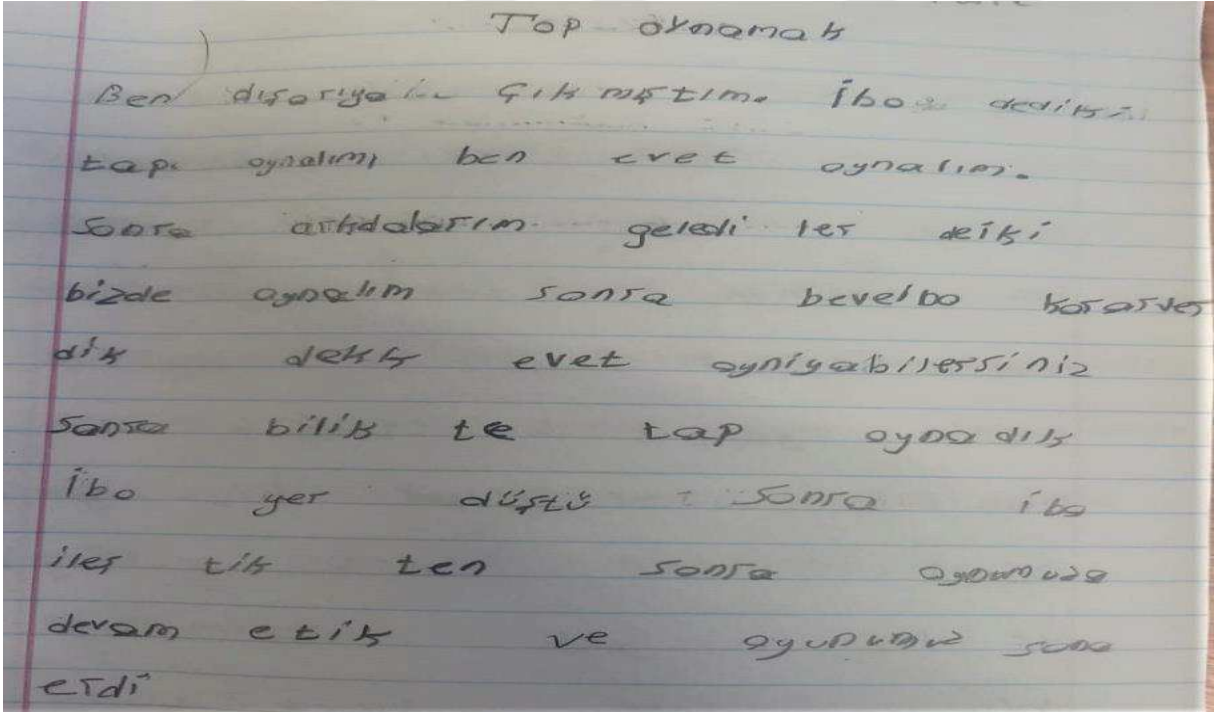 Top oynamak
Ben dışarıya çıkmıştım. İbo dediki
tap oynalım, ben evet oynalım.
Sonra arkdalarım geledi ler deiki
bizde oynalım sonra bevelbo kararver
dik dekk evet oyniyabilersiniz
Sonra bilik te tap oyna dık
İbo yer düştü sonra ibo
iles tik ten sonra oyunumuza
devam etik ve oyunumuz sona
erdi